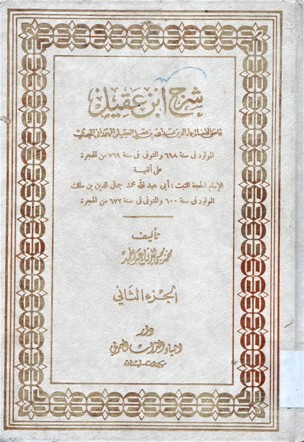 شرح ابن عقيل
قاضي القضاة بهاء الدين عبد الله بن عقيل العقيلي الهمداني المصري
المولود في سنة ٦٩٨ والمتوفى في سنة ٧٦٩ من الهجرة
على ألفية
الإمام الحجة الثبت : أبي عبد الله محمد جمال الدين بن مالك
المولود في سنة ٦٠٠ والمتوفى في سنة ٦٧٢ من الهجرة
تأليف
محمد محيي الدين عبد الحميد
الجزء الثاني
دار
إحياء التراث العربي
بيروت لبنان